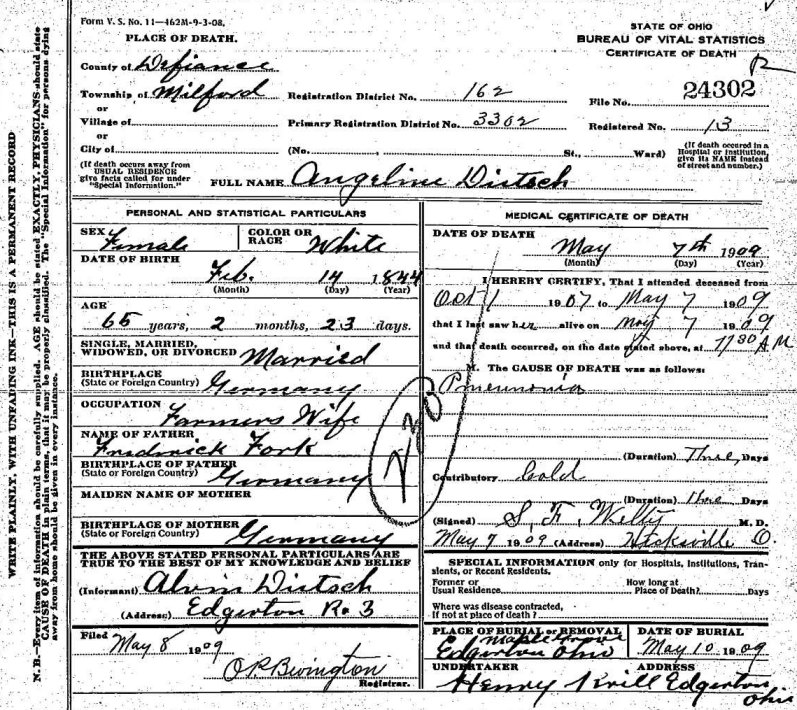 Form V. S. No. 11—462M-9-3-08.
PLACE OF DEATH.
STATE OF OHIO
BUREAU OF VITAL STATISTICS
CERTIFICATE OF DEATH
County of Defiance
Township of Milford Registration District No. 162 File No. 24302
or
Village of Primary Registration District No. 3302 Registered No. 13
or
City of (No. St., Ward) (If death occured in a Hospital or Institution, give its NAME instead of street and number.)
(If death occurs away from USUAL RESIDENCE give facts called for under "Special Information.")
FULL NAME Angeline Dietsch
PERSONAL AND STATISTICAL PARTICULARS
SEX Female COLOR OR RACE White
DATE OF BIRTH
Feb. 14 1844
(Month) (Day) (Year)
AGE
65 years, 2 months, 23 days.
SINGLE, MARRIED, WIDOWED, OR DIVORCED Married
BIRTHPLACE
(State or Foreign Country) Germany
OCCUPATION Farmers Wife
NAME OF FATHER
Fredrick Fork
BIRTHPLACE OF FATHER
(State or Foreign Country) Germany
MAIDEN NAME OF MOTHER
BIRTHPLACE OF MOTHER
(State or Foreign Country) Germany
THE ABOVE STATED PERSONAL PARTICULARS ARE
TRUE TO THE BEST OF MY KNOWLEDGE AND BELIEF
(Informant) Alvin Dietsch
(Address) Edgerton R. 3
Filed May 8 1909
O.P. Bevington
Registrar.
MEDICAL CERTIFICATE OF DEATH
DATE OF DEATH
May 7th 1909
(Month) (Day) (Year)
I HEREBY CERTIFY, That I attended deceased from
Oct 1 1907 to May 7 1909
that I last saw her alive on May 7 1909
and that death occurred, on the date stated above, at 1130 AM
M. The CAUSE OF DEATH was as follows:
Pneunonia
230
(Duration) Three Days
Contributory Cold
(Duration) three Days
(Signed) S. F. Welty M.D.
May 7 1909 (Address) Hicksville O.
SPECIAL INFORMATION only for Hospitals, Institutions, Transients, or Recent Residents.
Former or Usual Residence. How long at Place of Death? Days
Where was disease contracted, if not at place of death?
PLACE OF BURIAL or REMOVAL DATE OF BURIAL
Maple Grove
Edgerton Ohio May 10 1909
UNDERTAKER ADDRESS
Henry Krill Edgerton
Ohio
WRITE PLAINLY, WITH UNFADING INK—THIS IS A PERMANENT RECORD
N. B.—Every item of information should be carefully supplied. AGE should be stated EXACTLY. PHYSICIANS should state
CAUSE OF DEATH in plain terms, that it may be properly classified. The "Special Information" for persons dying
away from home should be given in every instance.